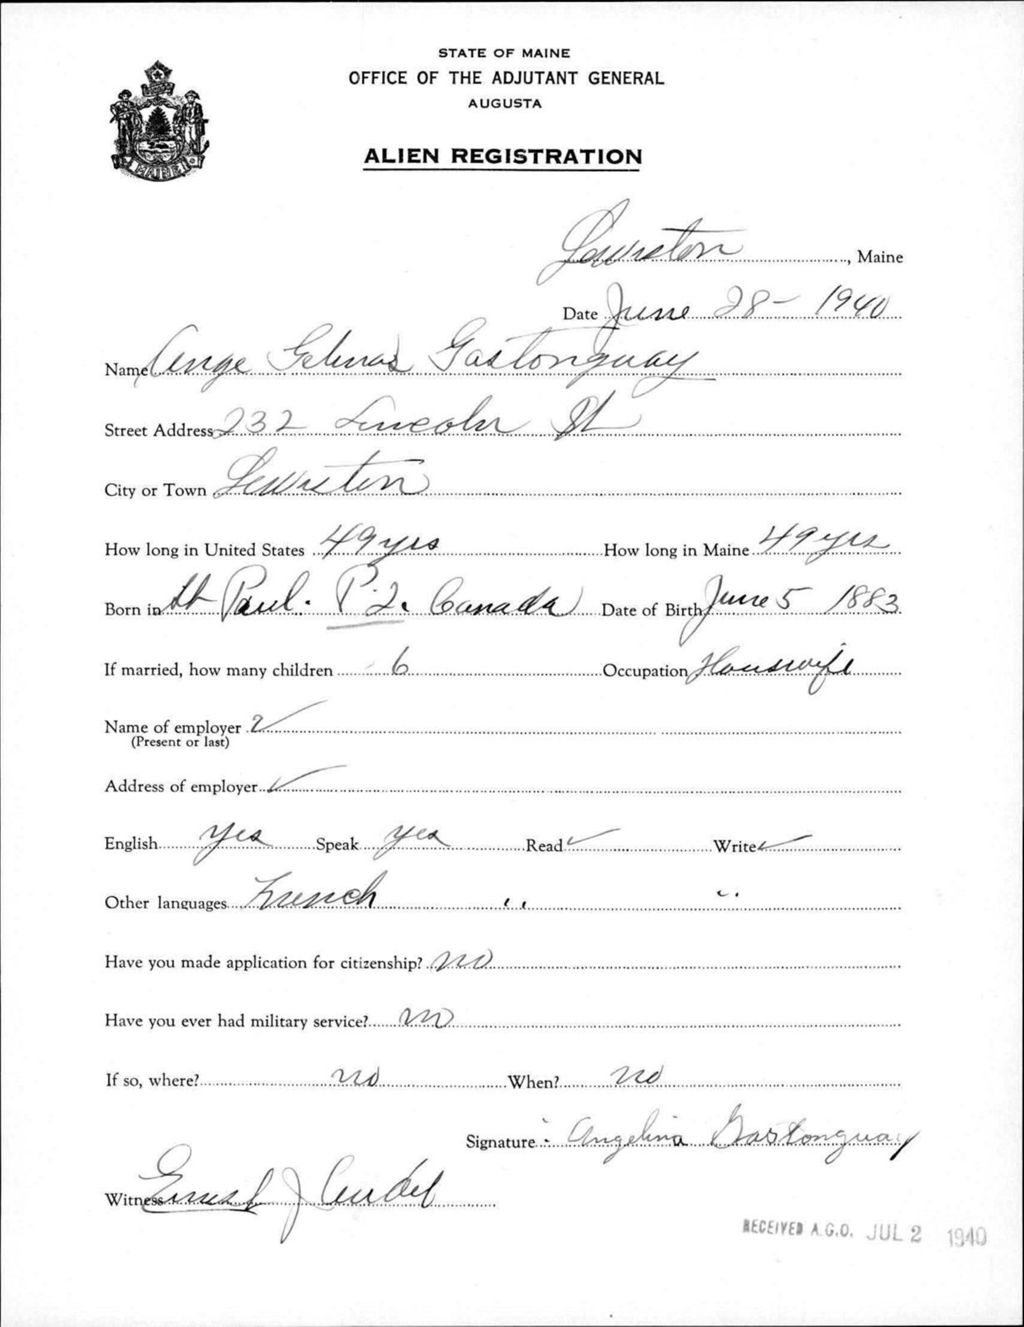 STATE OF MAINE
OFFICE OF THE ADJUTANT GENERAL
AUGUSTA
ALIEN REGISTRATION
MAINE
Lewiston, Maine
Date June 28 - 1940
Name Ange Gelinas Gastonguay
Street Address 232 Lincoln St
City or Town Lewiston
How long in United States 49 yrs How long in Maine 49 yrs
Born in St Paul. P.Q. Canada Date of Birth June 5 1883
If married, how many children 6 Occupation Housewife
Name of employer
(Present or last)
Address of employer ✓
English yes Speak yes Read ✓ Write ✓
Other languages French " "
Have you made application for citizenship? no
Have you ever had military service? no
If so, where? no When? no
Signature Angelina Gastonguay
Witness Ernest J
RECEIVED A.G.O. JUL 2 1940